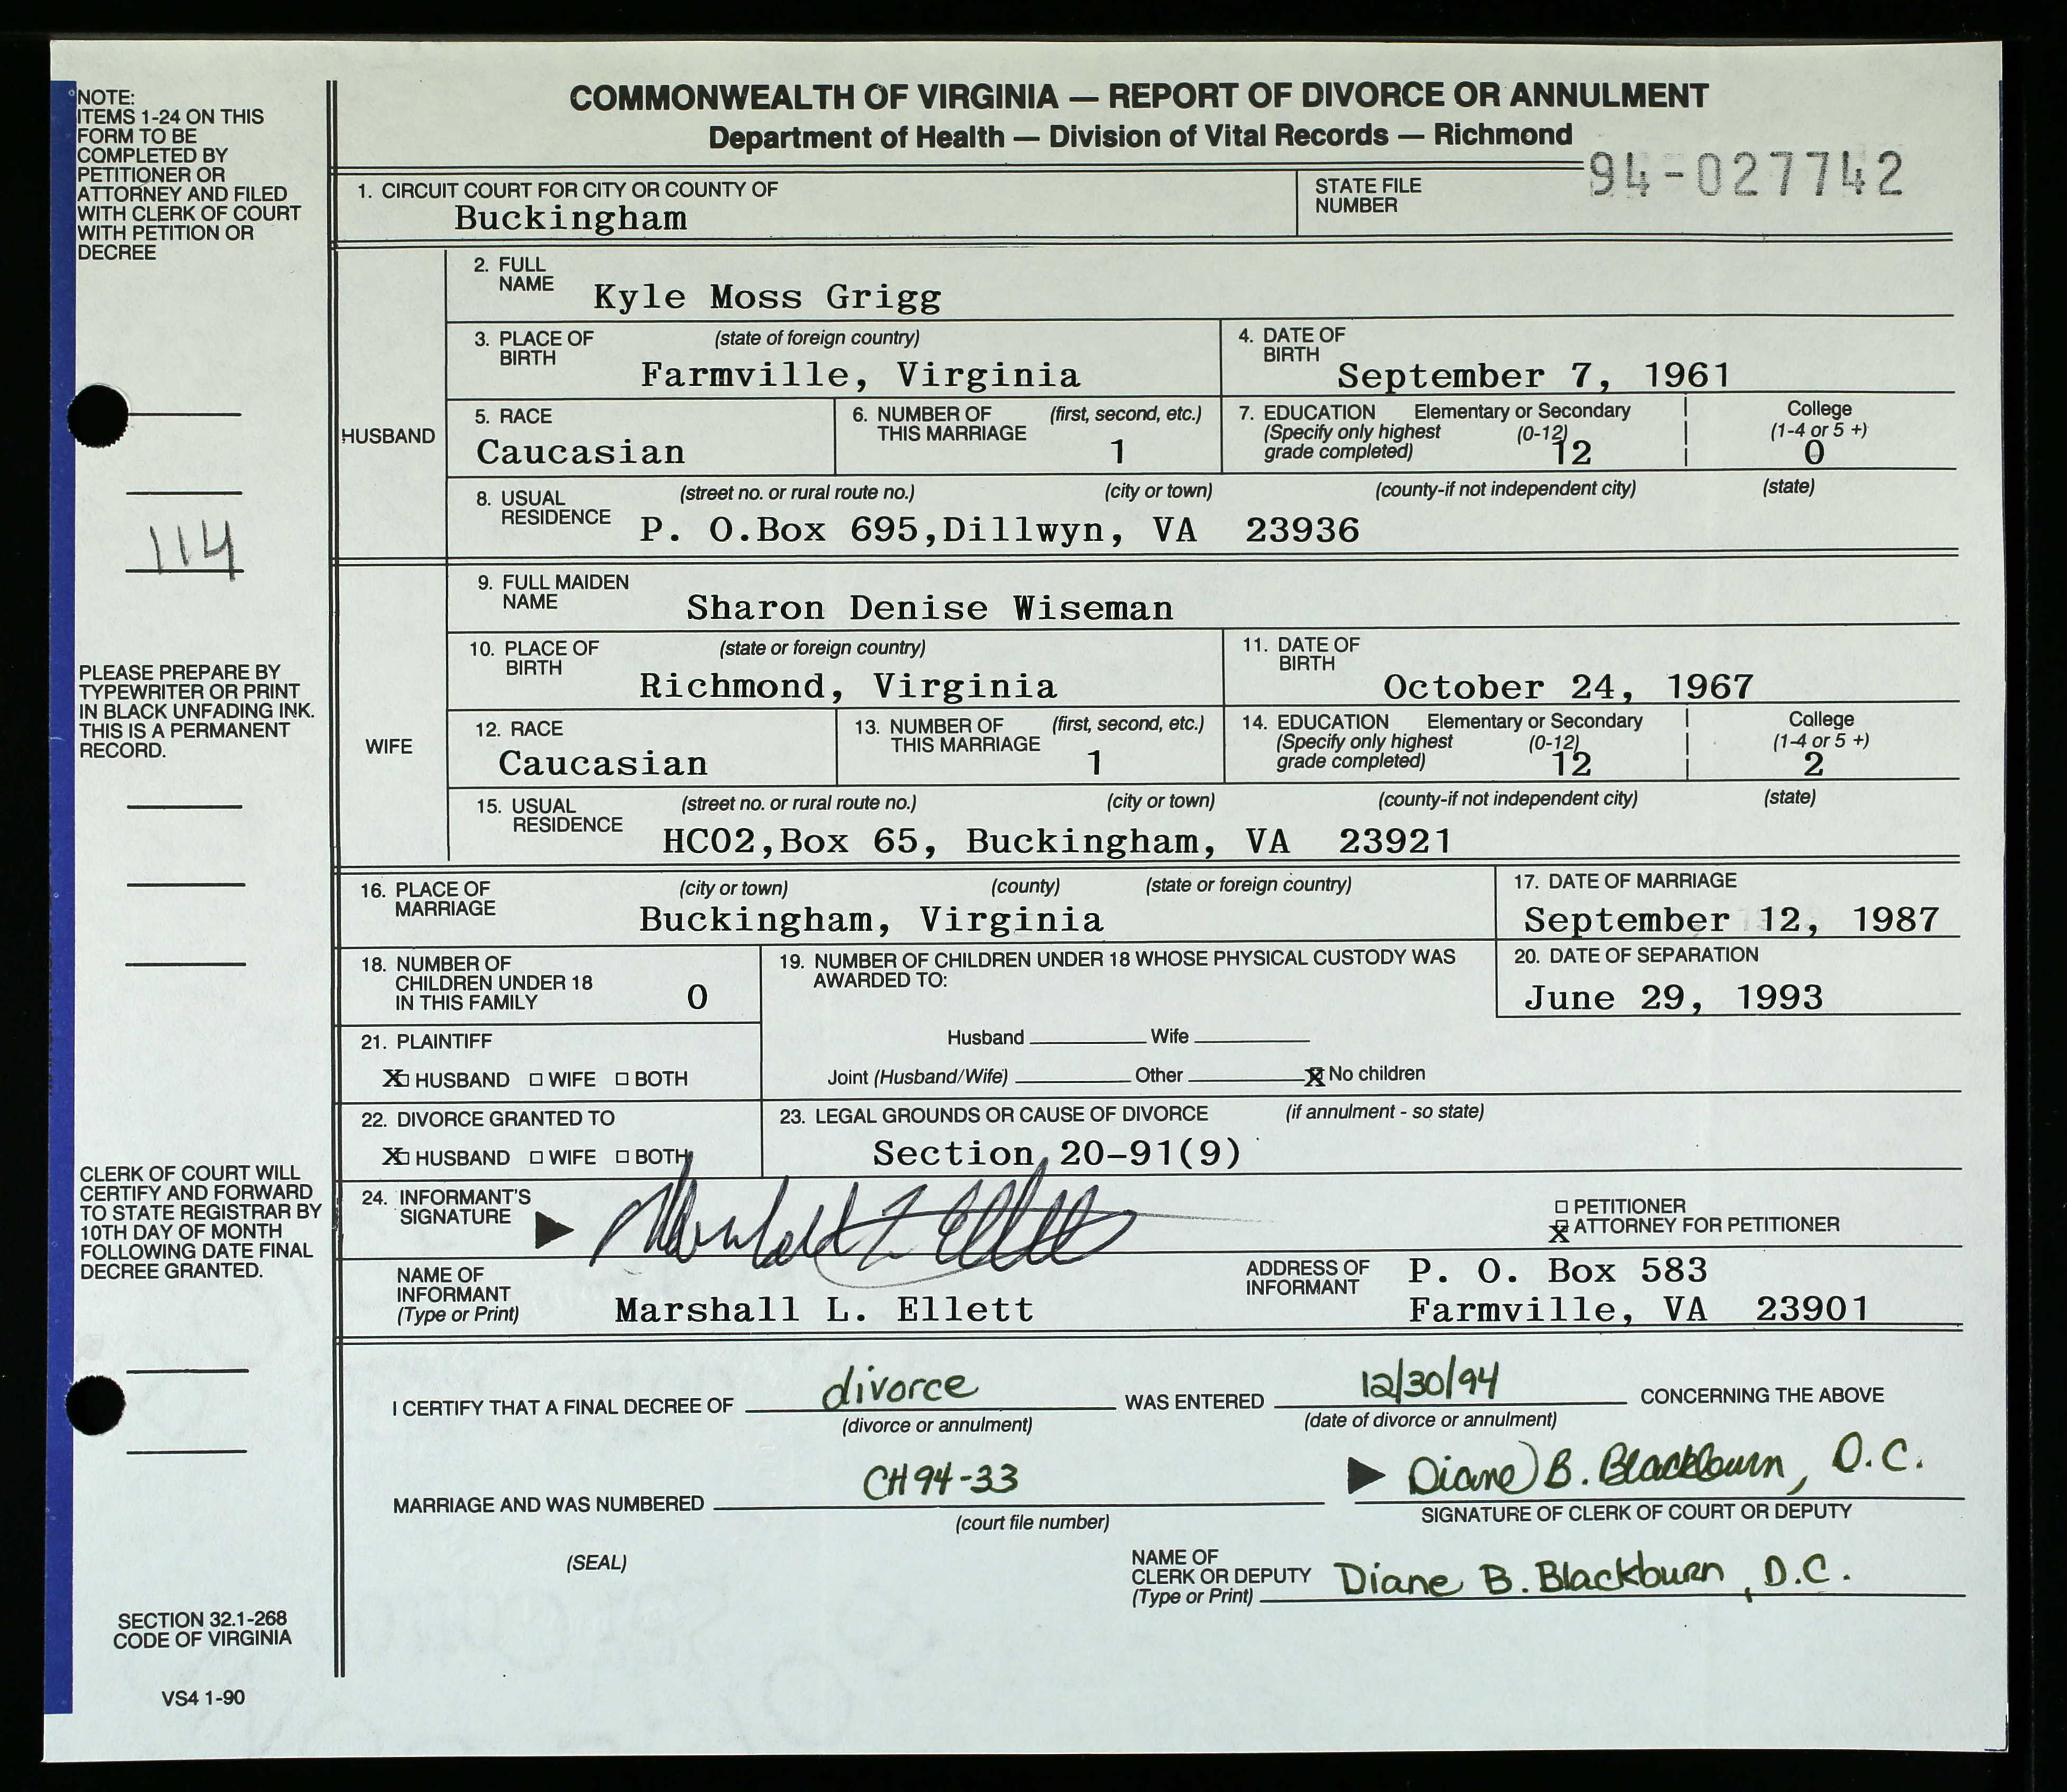 NOTE:
ITEMS 1-24 ON THIS
FORM TO BE
COMPLETED BY
PETITIONER OR
ATTORNEY AND FILED
WITH CLERK OF COURT
WITH PETITION OR
DECREE
114
PLEASE PREPARE BY
TYPEWRITER OR PRINT
IN BLACK UNFADING INK.
THIS IS A PERMANENT
RECORD.
CLERK OF COURT WILL
CERTIFY AND FORWARD
TO STATE REGISTRAR BY
10TH DAY OF MONTH
FOLLOWING DATE FINAL
DECREE GRANTED.
SECTION 32.1-268
CODE OF VIRGINIA
VS4 1-90
COMMONWEALTH OF VIRGINIA — REPORT OF DIVORCE OR ANNULMENT
Department of Health — Division of Vital Records — Richmond
1. CIRCUIT COURT FOR CITY OR COUNTY OF
Buckingham
STATE FILE
NUMBER
94-027742
HUSBAND
2. FULL
NAME
Kyle Moss Grigg
3. PLACE OF
BIRTH
(state of foreign country)
Farmville, Virginia
4. DATE OF
BIRTH
September 7, 1961
5. RACE
Caucasian
6. NUMBER OF (first, second, etc.)
THIS MARRIAGE
1
7. EDUCATION Elementary or Secondary College
(Specify only highest (0-12) (1-4 or 5 +)
grade completed) 12 0
8. USUAL (street no. or rural route no.) (city or town) (county-if not independent city) (state)
RESIDENCE
P. O.Box 695,Dillwyn, VA 23936
WIFE
9. FULL MAIDEN
NAME
Sharon Denise Wiseman
10. PLACE OF
BIRTH
(state or foreign country)
Richmond, Virginia
11. DATE OF
BIRTH
October 24, 1967
12. RACE
Caucasian
13. NUMBER OF (first, second, etc.)
THIS MARRIAGE
1
14. EDUCATION Elementary or Secondary College
(Specify only highest (0-12) (1-4 or 5 +)
grade completed) 12 2
15. USUAL (street no. or rural route no.) (city or town) (county-if not independent city) (state)
RESIDENCE
HC02,Box 65, Buckingham, VA 23921
16. PLACE OF (city or town) (county) (state or foreign country)
MARRIAGE
Buckingham, Virginia
17. DATE OF MARRIAGE
September 12, 1987
18. NUMBER OF
CHILDREN UNDER 18
IN THIS FAMILY 0
19. NUMBER OF CHILDREN UNDER 18 WHOSE PHYSICAL CUSTODY WAS
AWARDED TO:
Husband Wife
Joint (Husband/Wife) Other X No children
20. DATE OF SEPARATION
June 29, 1993
21. PLAINTIFF
X HUSBAND WIFE BOTH
22. DIVORCE GRANTED TO
X HUSBAND WIFE BOTH
23. LEGAL GROUNDS OR CAUSE OF DIVORCE (if annulment - so state)
Section 20-91(9)
24. INFORMANT'S
SIGNATURE
Marshall L Ellett
PETITIONER
X ATTORNEY FOR PETITIONER
NAME OF
INFORMANT
(Type or Print)
Marshall L. Ellett
ADDRESS OF
INFORMANT
P. O. Box 583
Farmville, VA 23901
I CERTIFY THAT A FINAL DECREE OF divorce WAS ENTERED 12/30/94 CONCERNING THE ABOVE
(divorce or annulment) (date of divorce or annulment)
MARRIAGE AND WAS NUMBERED CH94-33
(court file number)
Diane B. Blackburn, D.C.
SIGNATURE OF CLERK OF COURT OR DEPUTY
(SEAL)
NAME OF
CLERK OR DEPUTY
(Type or Print)
Diane B. Blackburn, D.C.